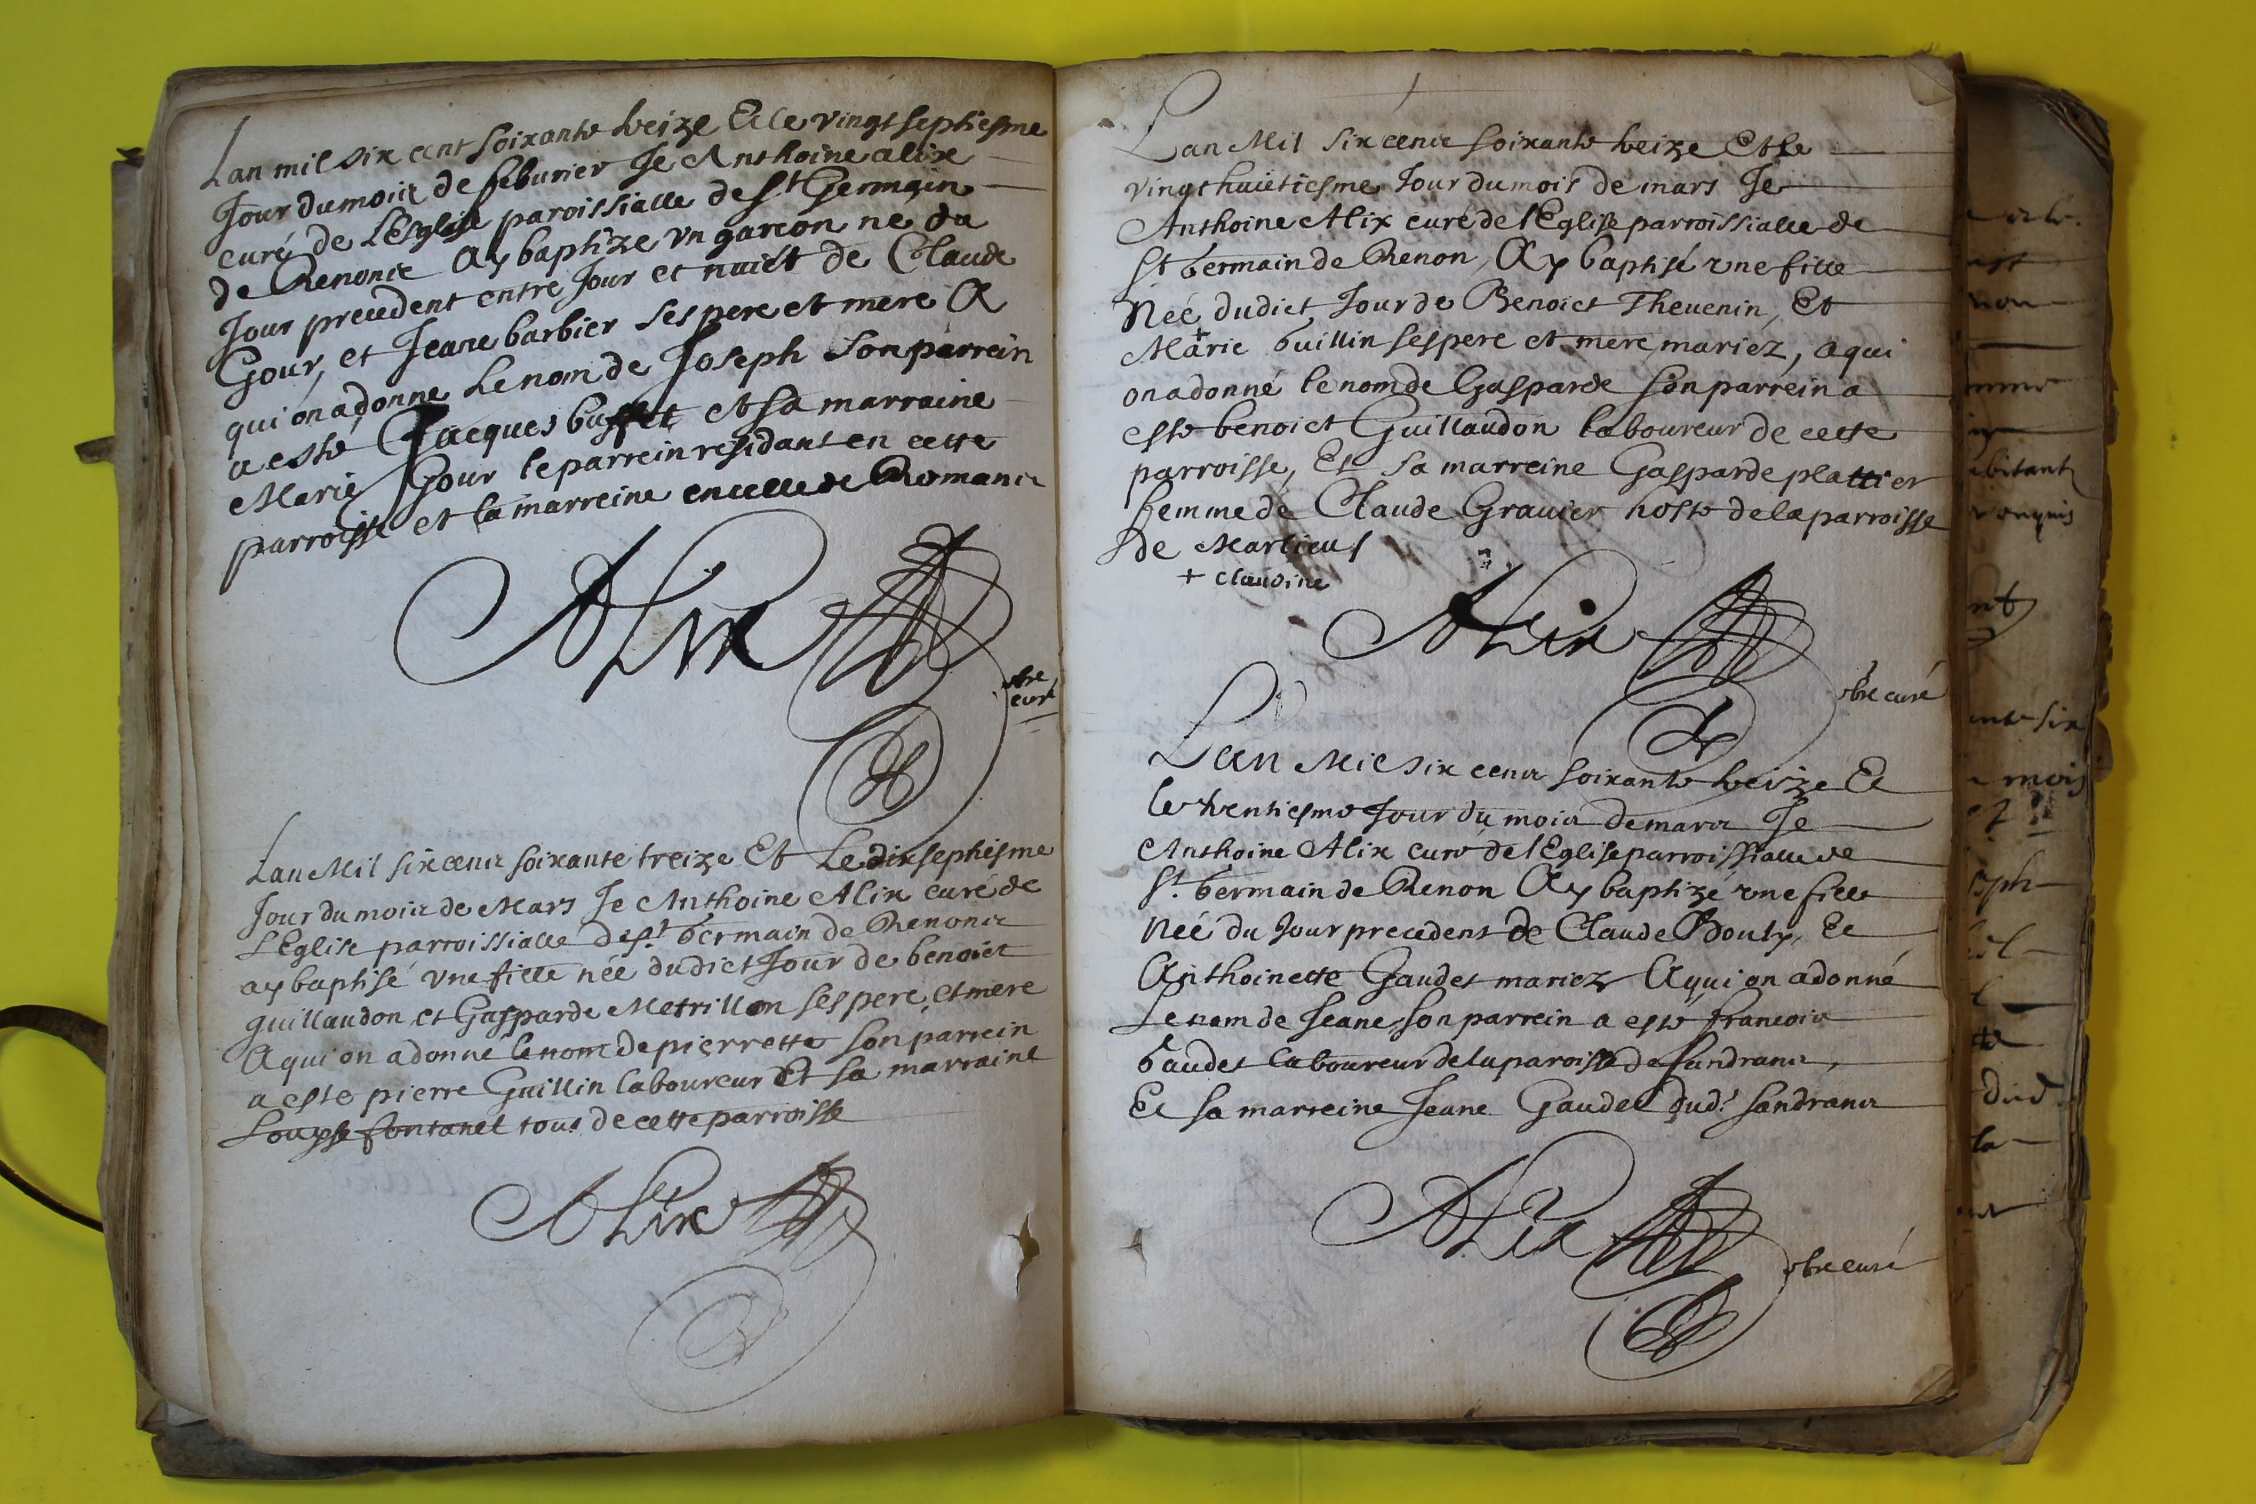 Lan mil six cent soixante treize Et le vingt septiesme
Jour du mois de feburier Je Anthoine alix
curé de L'Esglise paroissialle de St Germain
de Renons Ay baptize vn garcon né du
Jour precedent entre Jour et nuict de Claude
Gour, et Jeane barbier ses pere et mere A
qui on a donne Le nom de Joseph son parrein
a esté Jacques buffet et sa marraine
Marie Gour le parrein residant en cette
parroisse et la marreine en celle de Romans
Alix
pbre
curé
Lan Mil six cens soixante treize Et Le dixseptiesme
Jour du mois de Mars Je Anthoine Alix curé de
L'Eglise parroissialle de St Germain de Renons
ay baptisé vne fille née dudict Jour de benoict
guillaudon et Gasparde Metrillon ses pere, et mere
A qui on a donné le nom de pierrette son parrein
a esté pierre Guillin laboureur Et sa marraine
Louyse fontanel tous de cette parroisse
Alix
Lan Mil six cens soixante treize Et le
vingt huictiesme Jour du mois de mars Je
Anthoine Alix curé de l'Eglise parroissialle de
St Germain de Renon, Ay baptisé vne fille
Née dudict Jour de Benoict Thevenin, Et
+
Marie Guillin ses pere et mere mariez, a qui
on a donné le nom de Gasparde son parrein a
esté benoict Guillaudon laboureur de cette
parroisse, Et sa marreine Gasparde plattier
femme de Claude Gravier hoste de la parroisse
de Marlieus
+ Claudine
Alix
pbre curé
Lan Mil six cens soixante treize Et
le trentiesme Jour du mois de mars Je
Anthoine Alix curé de l'Eglise parroissialle de
St Germain de Renon Ay baptizé vne fille
Née du Jour precedent de Claude Bouty, Et
Anthoinette Gaudet mariez A qui on a donné
Le nom de Jeane, son parrein a esté francois
Gaudet laboureur de la paroisse de sandrans,
Et sa marreine Jeane Gaudet dud.t sandrans
Alix
pbre curé